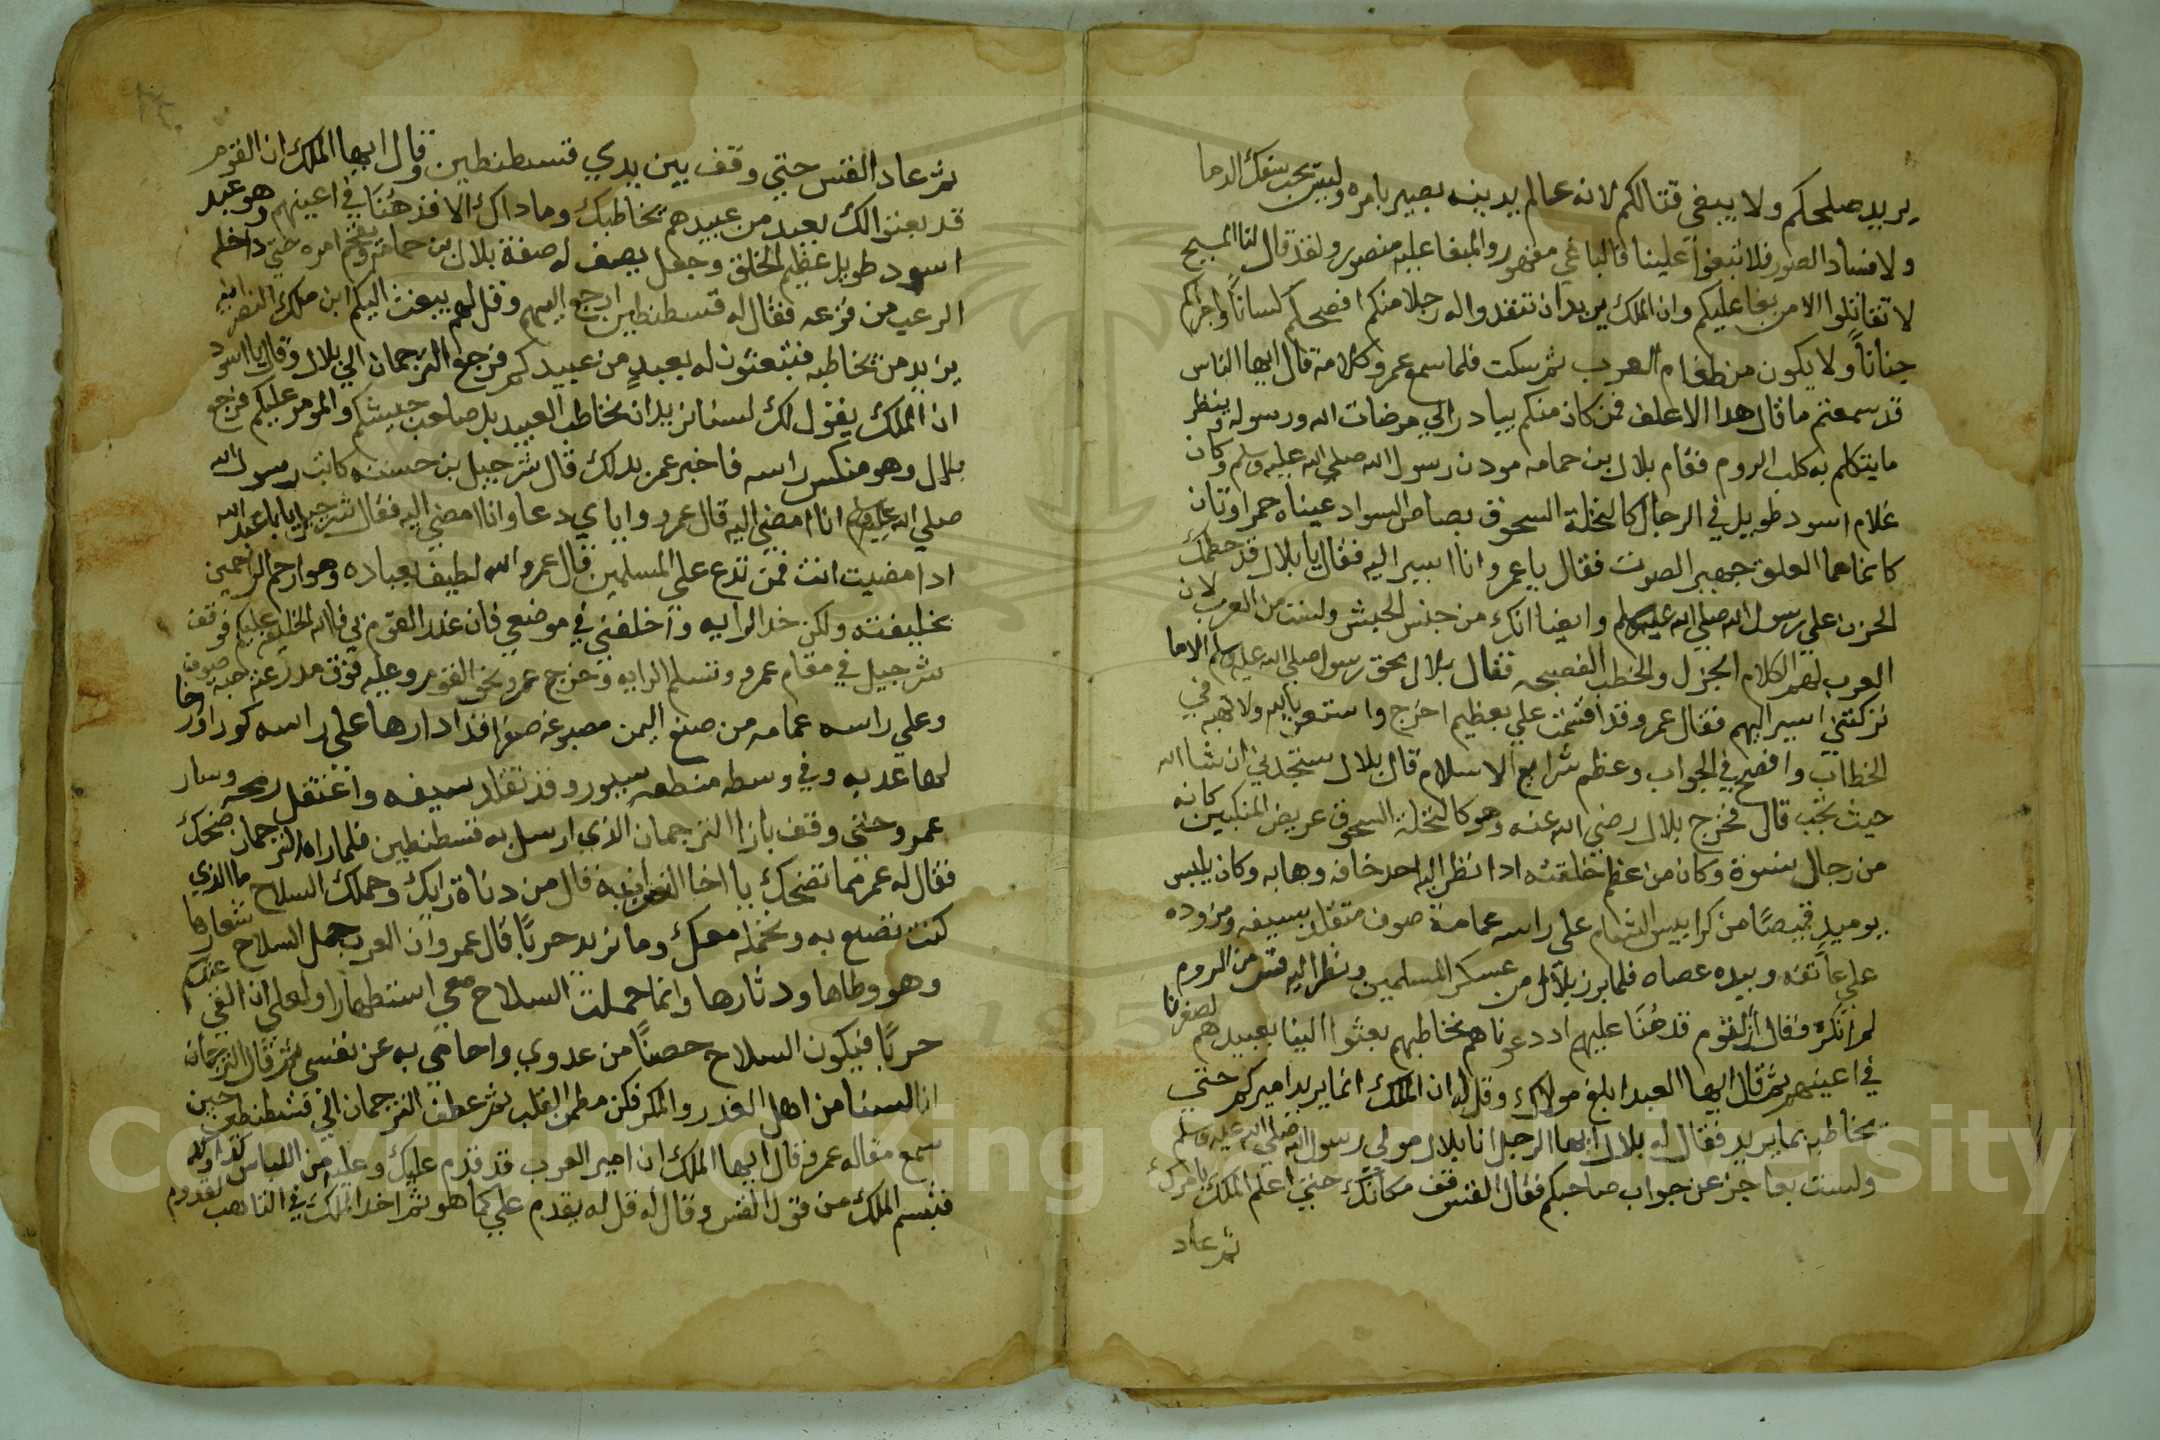 يريد صلحكم ولا يبغى قتالكم لانه عالم يدينه بصير بامره وليس يحب سفك الدما
ولا فساد الصور فلا تبغوا علينا فالباغي مقهور والمبغا عليه منصور ولقد قال لنا المسيح
لا تقاتلوا الا من بغا عليكم وان الملك يريد ان تنفدوا له رجلا منكم افصحكم لساناً واجراكم
جناناً ولا يكون من طغام العرب ثم سكت فلما سمع عمرو كلامه قال ايها الناس
قد سمعتم ما قال هدا الاغلف فمن كان منكم يبادر الي مرضات الله ورسوله وينظر
ما يتكلم به كلب الروم فقام بلال بن حمامه مودن رسول الله صلي الله عليه وسلم وكان
غلام اسود طويل في الرجال كالنخلة السحوق بصاص السواد عيناه حمراوتان
كانماهما العلق جهير الصوت فقال يا عمرو انا اسير اليه فقال يا بلال قد حطمك
الحزن علي رسول الله صلي الله عليه وسلم وايضا انك من جنس الحبش ولست من العرب لان
العرب لهم الكلام الجزل والخطب الفصيحه فقال بلال بحق رسول صلي الله عليه وسلم الا ما
تركتني اسير اليهم فقال عمرو قد اقسمت علي بعظيم اخرج واستعن بالله ولا تهبه في
الخطاب وافصح في الجواب وعظم شرايع الاسلام قال بلال ستجدني ان شا الله
حيث تحب قال فخرج بلال رضي الله عنه وهو كالنخلة السحوق عريض المنكبين كانه
من رجال شنوة وكان من عظم خلقته ادا نظر اليه احد خافه وهابه وكان يلبس
يوميد قميصًا من كرابيس الشام علي راسه عمامة صوف متقلد بسيفه ومزوده
علي عاتقه وبيده عصاه فلما برز بلال من عسكر المسلمين ونظر اليه قس من الروم
لم انكره وقال ان القوم قد هُنَا عليهم اد دعوناهم نخاطبهم بعثوا الينا بعبيدهم لصغرنا
في اعينهم ثم قال ايها العبد ابلغ مولاك وقل له ان الملك انما يريد اميركم حتي
يخاطبه بما يريد فقال له بلال ايها الرجل انا بلال مولي رسول الله صلي الله عليه وسلم
ولست بعاجز عن جواب صاحبكم فقال القس قف مكانك حتي اعلم الملك بامرك
ثم عاد
ثم عاد القس حتي وقف بين يدي قسطنطين وقال ايها الملك ان القوم
قد بعثوا لك بعبد من عبيدهم يخاطبك وما داك الا قد هُنَا في اعينهم وهو عبد
اسود طويل عظيم الخلق وجعل يصف له صفة بلال بن حمامه ويفخم امره حتي داخله
الرعب من فزعه فقال له قسطنطين ارجع اليهم وقل لهم يبعث اليكم ابن ملك النصرانيه
يريد من يخاطبه فتبعثون له بعبدٍ من عبيدكم فرجع الترجمان الي بلال وقال يا اسود
ان الملك يقول لك لسنا نريد ان نخاطب العبيد بل صاحب جيشكم والمومر عليكم فرجع
بلال وهو منكس راسه فاخبر عمر بدلك قال شرحبيل بن حسنه كاتب رسول الله
صلي الله عليه وسلم انا امضي اليه قال عمرو واياي دعا وانا امضي اليه فقال شرحبيل يا ابا عبد الله
ادا مضيت انت فمن تدع علي المسلمين قال عمرو الله لطيف بعباده وهو ارحم الراحمين
بخليفته ولكن خد الرايه واخلفني في موضعي فان غدر القوم بي فالله الخليفه عليكم فوقف
شرحبيل في مقام عمرو وتسلم الرايه وخرج عمرو نحو القوم وعليه فوق مدرعته جبه صوف
وعلي راسه عمامه من صنع اليمن مصبوغه صفرا قد ادارها علي راسه كورا وارخا
لها عدبه وفي وسطه منطقه سيور وقد تقلد سيفه واعتقل رمحه وسار
عمرو حتي وقف بازا الترجمان الذي ارسل به قسطنطين فلما راه الترجمان ضحك
فقال له عمر مما تضحك يا اخا النصرانيه قال من دناة زيك وحملك السلاح ما الذي
كنت تصنع به وتحمله معك وما نريد حربًا قال عمرو ان العرب حمل السلاح شعارها
وهو وطاها ودثارها وانما حملت السلاح معي استظهارا ولعلي ان القي عندكم
حربًا فيكون السلاح حصنًا من عدوي واحامي به عن نفسي ثم قال الترجمان
انا لسنا من اهل الغدر والمكر فكن مطمن القلب ثم عطف الترجمان الي قسطنطين حين
سمع مقاله عمرو قال ايها الملك ان امير العرب قد قدم عليك وعليه من اللباس كدا وكدا
فتبسم الملك من قول القس وقال له قل له يقدم علي كما هو ثم اخد الملك في التاهب لقدوم
Copyright © King Saud University
1957